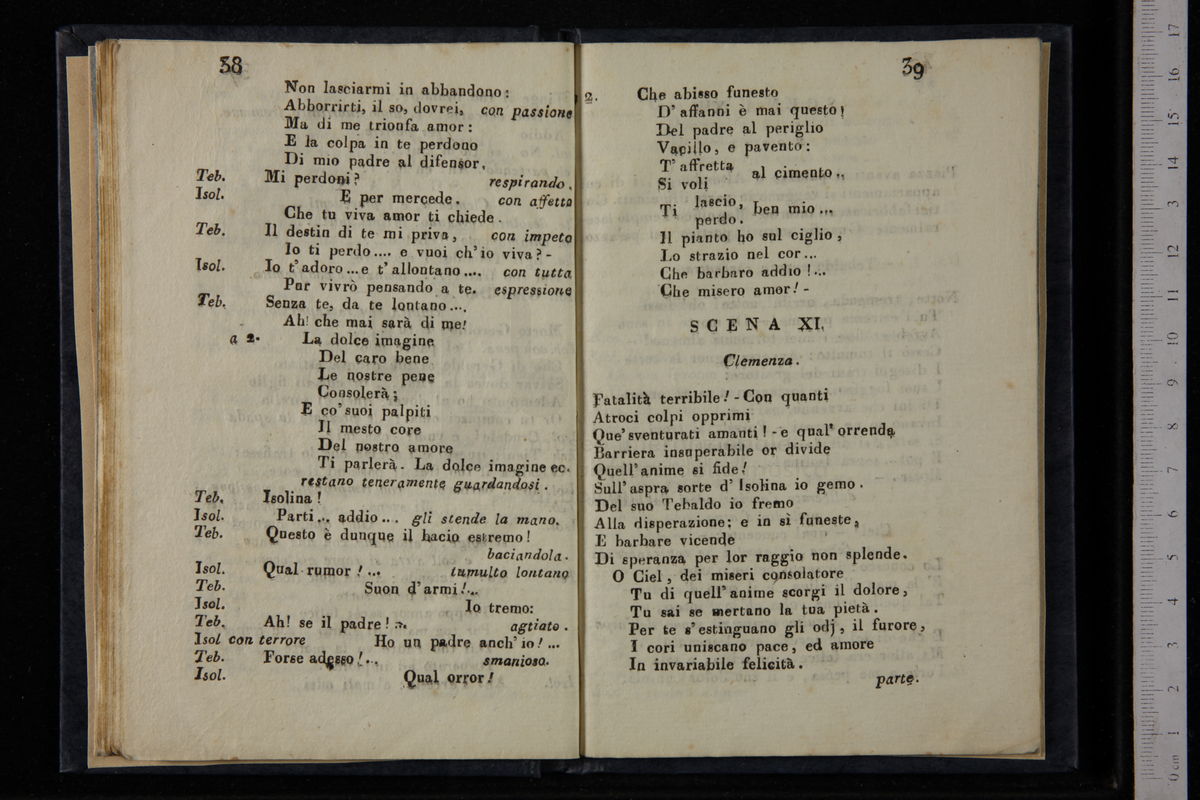 38
Non lasciarmi in abbandono:
Abborrirti, il so, dovrei, con passione
Ma di me trionfa amor:
E la colpa in te perdono
Di mio padre al difensor.
Teb. Mi perdoni? respirando.
Isol. E per mercede. con affetto
Che tu viva amor ti chiede.
Teb. Il destin di te mi priva, con impeto
Io ti perdo.... e vuoi ch'io viva? -
Isol. Io t'adoro... e t'allontano.... con tutta
Pur vivrò pensando a te. espressione
Teb. Senza te, da te lontano....
Ah! che mai sarà di me!
a 2. La dolce imagine
Del caro bene
Le nostre pene
Consolerà;
E co'suoi palpiti
Il mesto core
Del nostro amore
Ti parlerà. La dolce imagine ec.
restano teneramente guardandosi.
Teb. Isolina!
Isol. Parti... addio... gli stende la mano.
Teb. Questo è dunque il bacio estremo!
baciandola.
Isol. Qual rumor!... tumulto lontano
Teb. Suon d'armi!...
Isol. Io tremo:
Teb. Ah! se il padre!... agtiato.
Isol con terrore Ho un padre anch'io!...
Teb. Forse adesso!... smanioso.
Isol. Qual orror!
39
2. Che abisso funesto
D'affanni è mai questo!
Del padre al periglio
Vacillo, e pavento:
T'affretta
al cimento..
Si voli
Ti lascio, ben mio...
perdo.
Il pianto ho sul ciglio,
Lo strazio nel cor...
Che barbaro addio!...
Che misero amor! -
SCENA XI.
Clemenza.
Fatalità terribile! - Con quanti
Atroci colpi opprimi
Que'sventurati amanti! - e qual'orrenda
Barriera insuperabile or divide
Quell'anime si fide!
Sull'aspra sorte d'Isolina io gemo.
Del suo Tebaldo io fremo
Alla disperazione; e in sì funeste,
E barbare vicende
Di speranza per lor raggio non splende.
O Ciel, dei miseri consolatore
Tu di quell'anime scorgi il dolore,
Tu sai se mertano la tua pietà.
Per te s'estinguano gli odj, il furore,
I cori uniscano pace, ed amore
In invariabile felicità.
parte.
0 cm 1 2 3 4 5 6 7 8 9 10 11 12 13 14 15 16 17